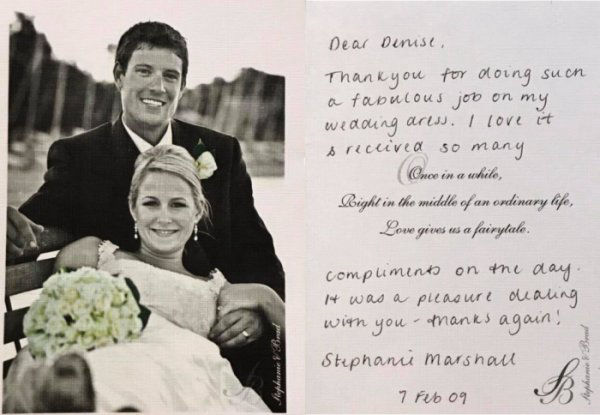 Dear Denise,
Thankyou for doing such
a fabulous job on my
wedding dress. I love it
& received so many
Once in a while,
Right in the middle of an ordinary life,
Love gives us a fairytale.
compliments on the day.
It was a pleasure dealing
with you - thanks again!
Stephanie Marshall
7 Feb 09
SB
Stephanie & Brad
SB
Stephanie & Brad